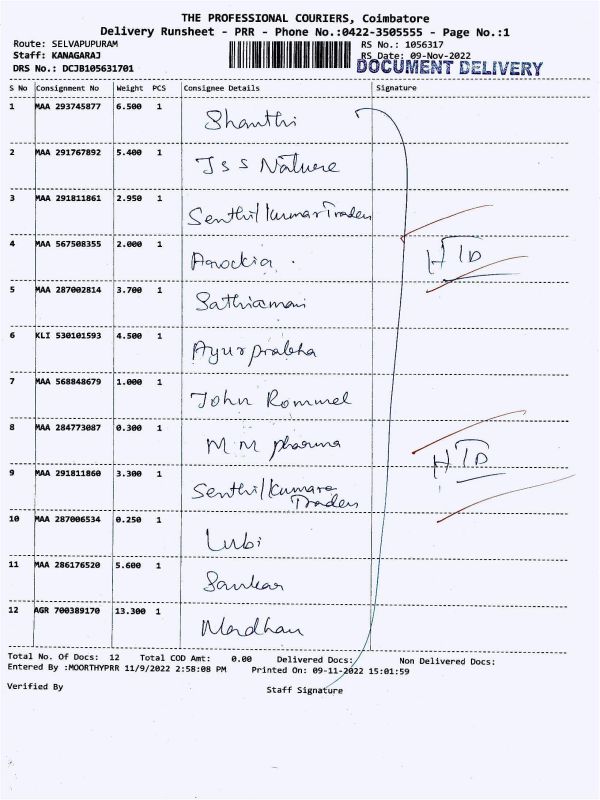 THE PROFESSIONAL COURIERS, Coimbatore
Delivery Runsheet - PRR - Phone No.:0422-3505555 - Page No.:1
Route: SELVAPUPURAM
RS No.: 1056317
Staff: KANAGARAJ
RS Date: 09-Nov-2022
DRS No.: DCJB105631701
DOCUMENT DELIVERY
S No Consignment No Weight PCS Consignee Details Signature
1 MAA 293745877 6.500 1 Shanthi
2 MAA 291767892 5.400 1 JSS Nature
3 MAA 291811861 2.950 1 Senthil Kumar Traders
4 MAA 567508355 2.000 1 Arockia
HTD
5 MAA 287002814 3.700 1 Sathiamani
6 KLI 530101593 4.500 1 Ayur prabha
7 MAA 568848679 1.000 1 John Rommel
8 MAA 284773087 0.300 1 M M pharma
HTD
9 MAA 291811860 3.300 1 Senthil Kumara
Traders
10 MAA 287006534 0.250 1 Lubi
11 MAA 286176520 5.600 1 Sankar
12 AGR 700389170 13.300 1 Mardhan
Total No. Of Docs: 12 Total COD Amt: 0.00 Delivered Docs: Non Delivered Docs:
Entered By :MOORTHYPRR 11/9/2022 2:58:08 PM Printed On: 09-11-2022 15:01:59
Verified By Staff Signature